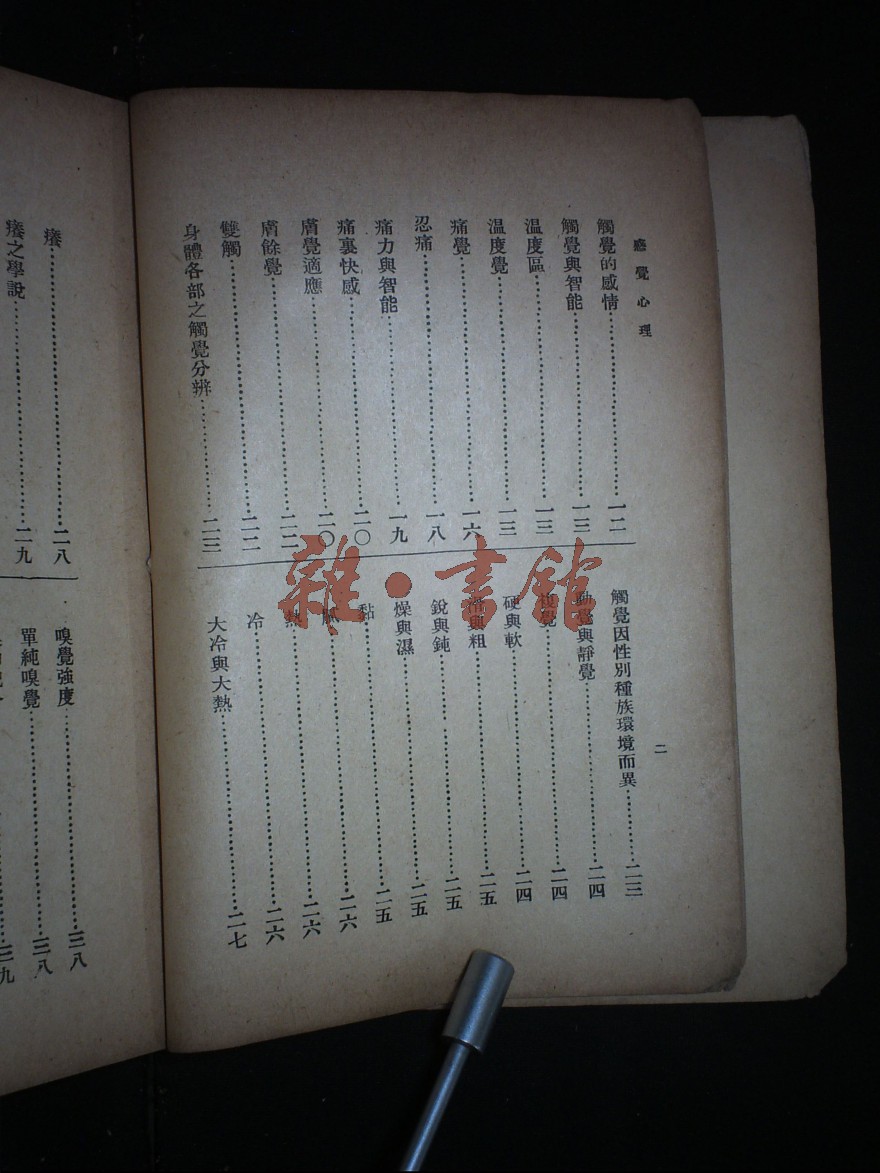 感覺心理
觸覺的感情……一二
觸覺與智能……一三
温度區……一三
温度覺……一三
痛覺……一六
忍痛……一八
痛力與智能……一九
痛裏快感……二〇
膚覺適應……二〇
膚餘覺……二二
雙觸……二二
身體各部之觸覺分辨……二三
二
觸覺因性別種族環境而異……二三
動覺與靜覺……二四
複覺……二四
硬與軟……二四
滑與粗……二五
銳與鈍……二五
燥與濕……二五
黏……二五
膩……二六
熱……二六
冷……二六
大冷與大熱……二七
癢……二八
癢之學說……二九
嗅覺強度……三八
單純嗅覺……三八
三九
雜·書館